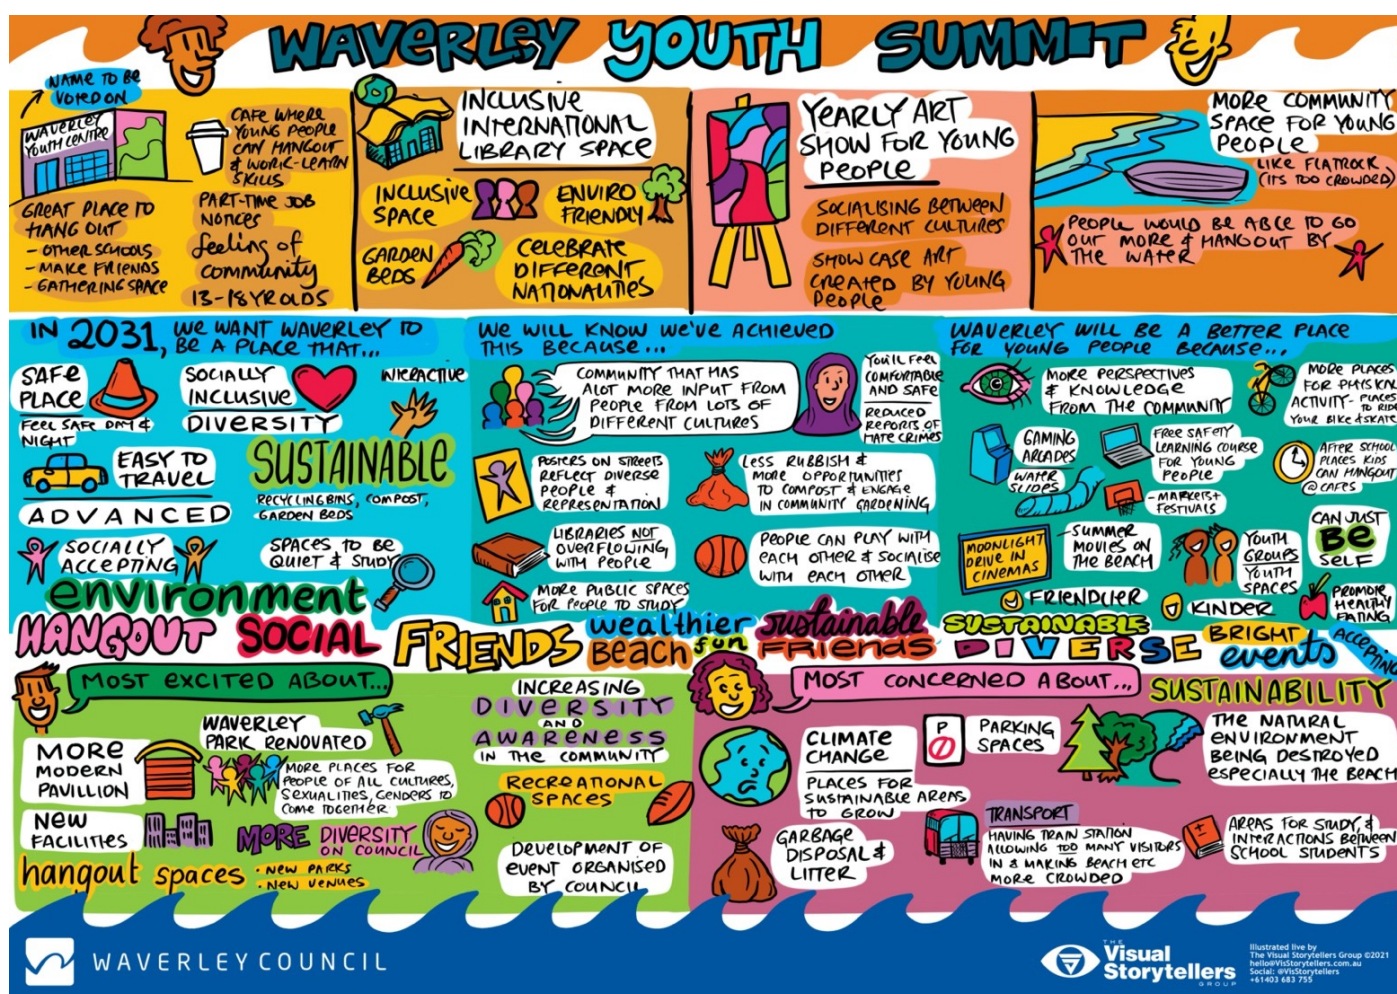 WAVERLEY YOUTH SUMMIT
NAME TO BE
VOTED ON
WAVERLEY
YOUTH CENTRE
GREAT PLACE TO
HANG OUT
- OTHER SCHOOLS
- MAKE FRIENDS
- GATHERING SPACE
CAFE WHERE
YOUNG PEOPLE
CAN HANGOUT
& WORK-LEARN
SKILLS
PART-TIME JOB
NOTICES
feeling of
community
13-18 YR OLDS
INCLUSIVE
INTERNATIONAL
LIBRARY SPACE
INCLUSIVE
SPACE
ENVIRO
FRIENDLY
GARDEN
BEDS
CELEBRATE
DIFFERENT
NATIONALITIES
YEARLY ART
SHOW FOR YOUNG
PEOPLE
SOCIALISING BETWEEN
DIFFERENT CULTURES
SHOW CASE ART
CREATED BY YOUNG
PEOPLE
MORE COMMUNITY
SPACE FOR YOUNG
PEOPLE
LIKE FLATROCK
(ITS TOO CROWDED)
PEOPLE WOULD BE ABLE TO GO
OUR MORE & HANGOUT BY
THE WATER
IN 2031, WE WANT WAVERLEY TO
BE A PLACE THAT...
SAFE
PLACE
FEEL SAFE DAY &
NIGHT
SOCIALLY
INCLUSIVE
DIVERSITY
INTERACTIVE
EASY TO
TRAVEL
SUSTAINABLE
RECYCLING BINS, COMPOST,
GARDEN BEDS
ADVANCED
SOCIALLY
ACCEPTING
SPACES TO BE
QUIET & STUDY
WE WILL KNOW WE'VE ACHIEVED
THIS BECAUSE...
COMMUNITY THAT HAS
ALOT MORE INPUT FROM
PEOPLE FROM LOTS OF
DIFFERENT CULTURES
YOU'LL FEEL
COMFORTABLE
AND SAFE
REDUCED
REPORTS OF
HATE CRIMES
POSTERS ON STREETS
REFLECT DIVERSE
PEOPLE &
REPRESENTATION
LESS RUBBISH &
MORE OPPORTUNITIES
TO COMPOST & ENGAGE
IN COMMUNITY GARDENING
LIBRARIES NOT
OVERFLOWING
WITH PEOPLE
PEOPLE CAN PLAY WITH
EACH OTHER & SOCIALISE
WITH EACH OTHER
MORE PUBLIC SPACES
FOR PEOPLE TO STUDY
WAVERLEY WILL BE A BETTER PLACE
FOR YOUNG PEOPLE BECAUSE...
MORE PERSPECTIVES
& KNOWLEDGE
FROM THE COMMUNITY
MORE PLACES
FOR PHYSICAL
ACTIVITY- PLACES
TO RIDE
YOUR BIKE & SKATE
GAMING
ARCADES
WATER
SLIDES
FREE SAFETY
LEARNING COURSE
FOR YOUNG
PEOPLE
- MARKETS +
FESTIVALS
AFTER SCHOOL
PLACES KIDS
CAN HANGOUT
@ CAFES
MOONLIGHT
DRIVE IN
CINEMAS
- SUMMER
MOVIES ON
THE BEACH
YOUTH
GROUPS
YOUTH
SPACES
CAN JUST
BE
SELF
FRIENDLIER
KINDER
PROMOTE
HEALTHY
EATING
environment
HANGOUT SOCIAL FRIENDS
wealthier
Beach fun
sustainable
FRiends
SUSTAINABLE
DIVERSE
BRIGHT
events
ACCEPTING
MOST EXCITED ABOUT...
WAVERLEY
PARK RENOVATED
MORE
MODERN
PAVILLION
MORE PLACES FOR
PEOPLE OF ALL CULTURES,
SEXUALITIES, GENDERS TO
COME TOGETHER
NEW
FACILITIES
MORE DIVERSITY
ON COUNCIL
hangout spaces
• NEW PARKS
• NEW VENUES
INCREASING
DIVERSITY
AND
AWARENESS
IN THE COMMUNITY
RECREATIONAL
SPACES
DEVELOPMENT OF
EVENT ORGANISED
BY COUNCIL
MOST CONCERNED ABOUT...
SUSTAINABILITY
CLIMATE
CHANGE
PLACES FOR
SUSTAINABLE AREAS
TO GROW
P
PARKING
SPACES
THE NATURAL
ENVIRONMENT
BEING DESTROYED
ESPECIALLY THE BEACH
GARBAGE
DISPOSAL &
LITTER
TRANSPORT
HAVING TRAIN STATION
ALLOWING TOO MANY VISITORS
IN & MAKING BEACH ETC
MORE CROWDED
AREAS FOR STUDY, &
INTERACTIONS BETWEEN
SCHOOL STUDENTS
WAVERLEY COUNCIL
THE
Visual
Storytellers
GROUP
Illustrated live by
The Visual Storytellers Group ©2021
hello@VisStorytellers.com.au
Social: @VisStorytellers
+61403 683 755